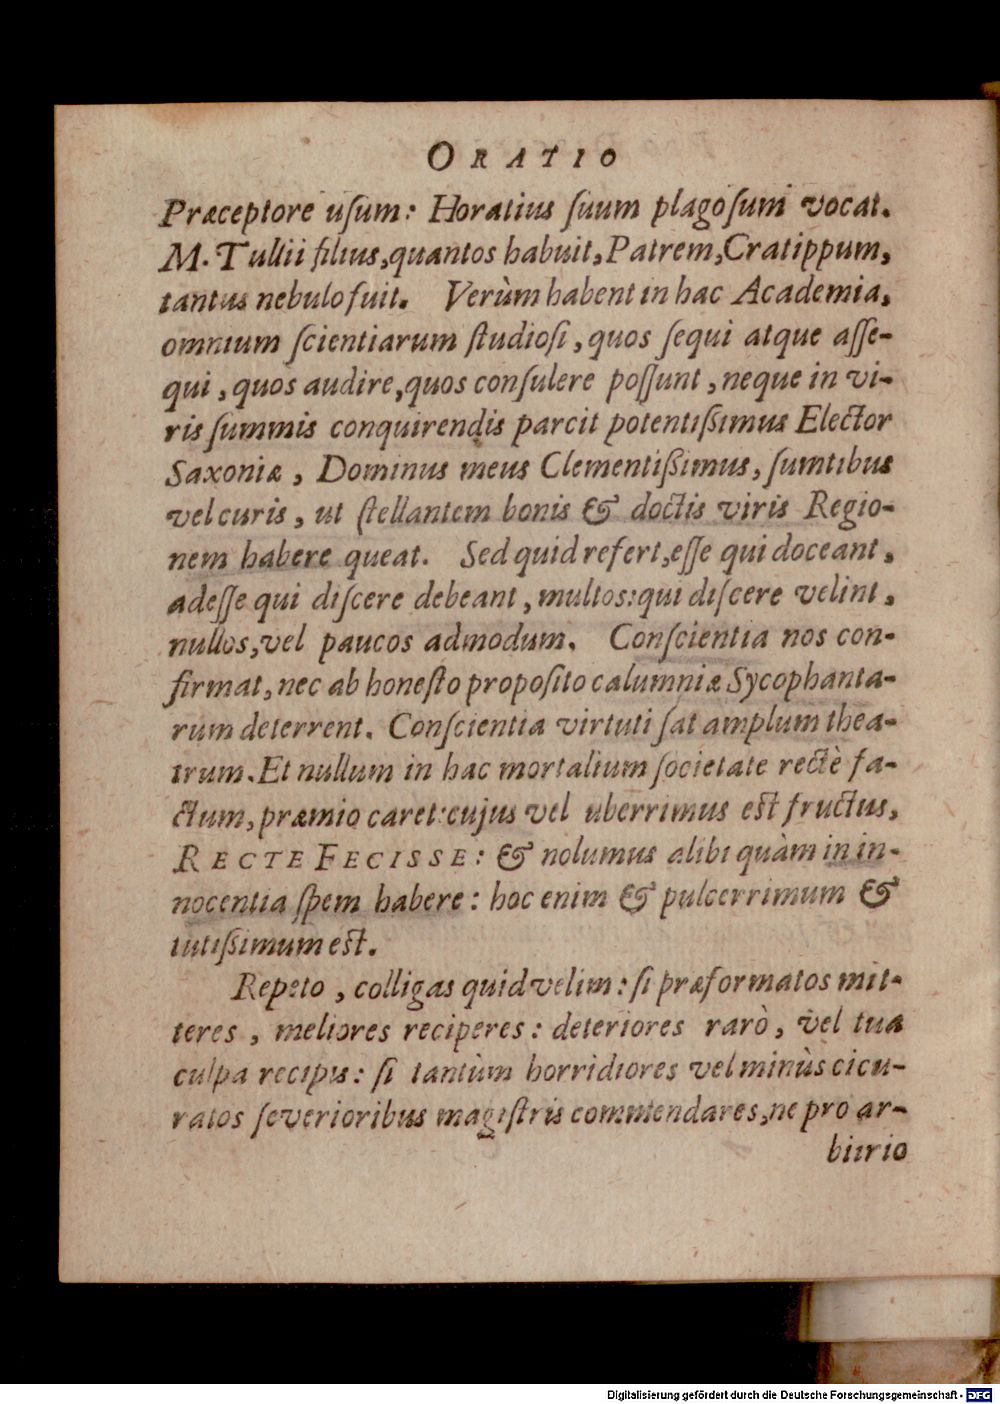 ORATIO
Præceptore uſum: Horatius ſuum plagoſum vocat.
M. Tullii filius, quantos habuit, Patrem, Cratippum,
tantus nebulo fuit. Verùm habent in hac Academia,
omnium ſcientiarum ſtudioſi, quos ſequi atque aſſe-
qui, quos audire, quos conſulere poſſunt, neque in vi-
ris ſummis conquirendis parcit potentiſſimus Elector
Saxoniæ, Dominus meus Clementiſſimus, ſumtibus
vel curis, ut ſtellantem bonis & doctis viris Regio-
nem habere queat. Sed quid refert, eſſe qui doceant,
adeſſe qui diſcere debeant, multos: qui diſcere velint,
nullos, vel paucos admodum. Conſcientia nos con-
firmat, nec ab honeſto propoſito calumniæ Sycophanta-
rum deterrent. Conſcientia virtuti ſat amplum thea-
trum. Et nullum in hac mortalium ſocietate rectè fa-
ctum, præmio caret: cujus vel uberrimus eſt fructus,
RECTE FECISSE: & nolumus alibi quàm in in-
nocentia ſpem habere: hoc enim & pulcerrimum &
tutiſſimum eſt.
Repeto, colligas quid velim: ſi præformatos mit-
teres, meliores reciperes: deteriores rarò, vel tua
culpa recipis: ſi tantùm horridiores vel minùs cicu-
ratos ſeverioribus magiſtris commendares, ne pro ar-
bitrio
Digitalisierung gefördert durch die Deutsche Forschungsgemeinschaft - DFG